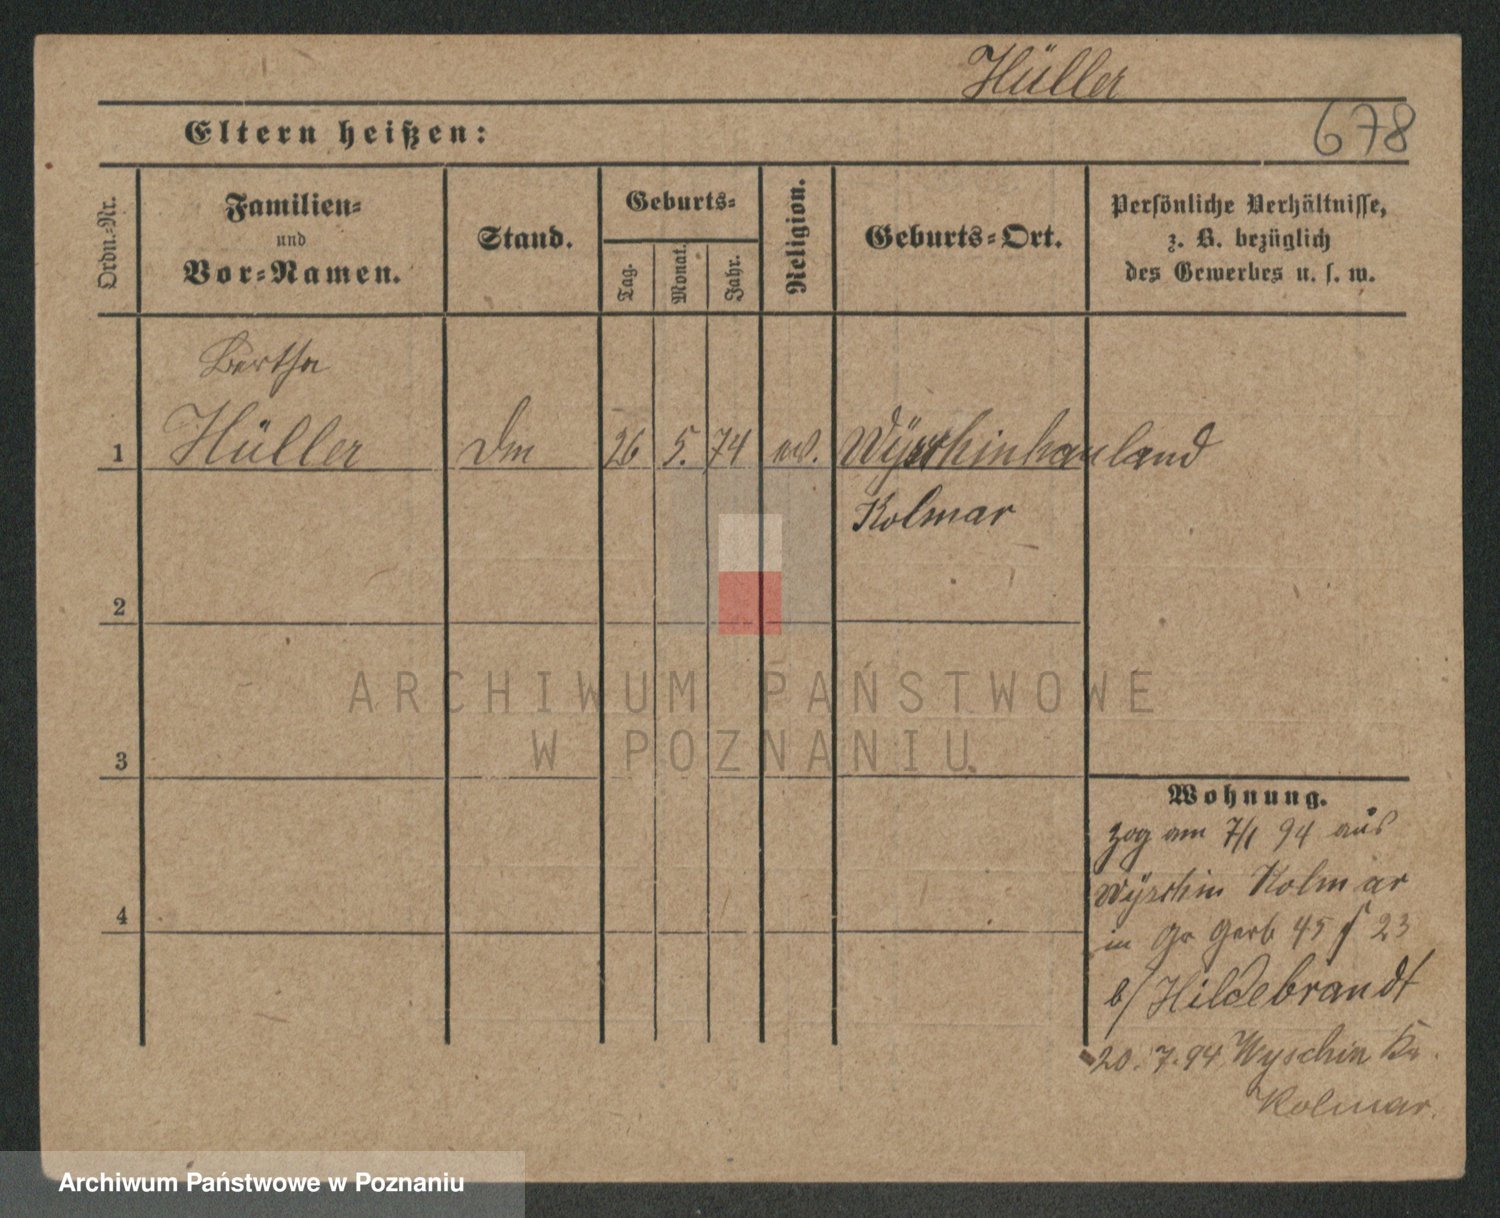 Hüller
678
Eltern heißen:
Ordn.-Nr.
Familien-
und
Vor-Namen.
Stand.
Geburts-
Tag.
Monat.
Jahr.
Religion.
Geburts-Ort.
Persönliche Verhältnisse,
z. B. bezüglich
des Gewerbes u. s. w.
Bertha
1 Hüller 26 5. 74 ev.
Kolmar
2
3
4
Wohnung.
zog am 7/1 94 aus
Kolmar
in Gr Gerb 45 23
b/ Hildebrandt
20. 7. 94 Wyschin Kr.
Kolmar.
ARCHIWUM PAŃSTWOWE
W POZNANIU
Archiwum Państwowe w Poznaniu